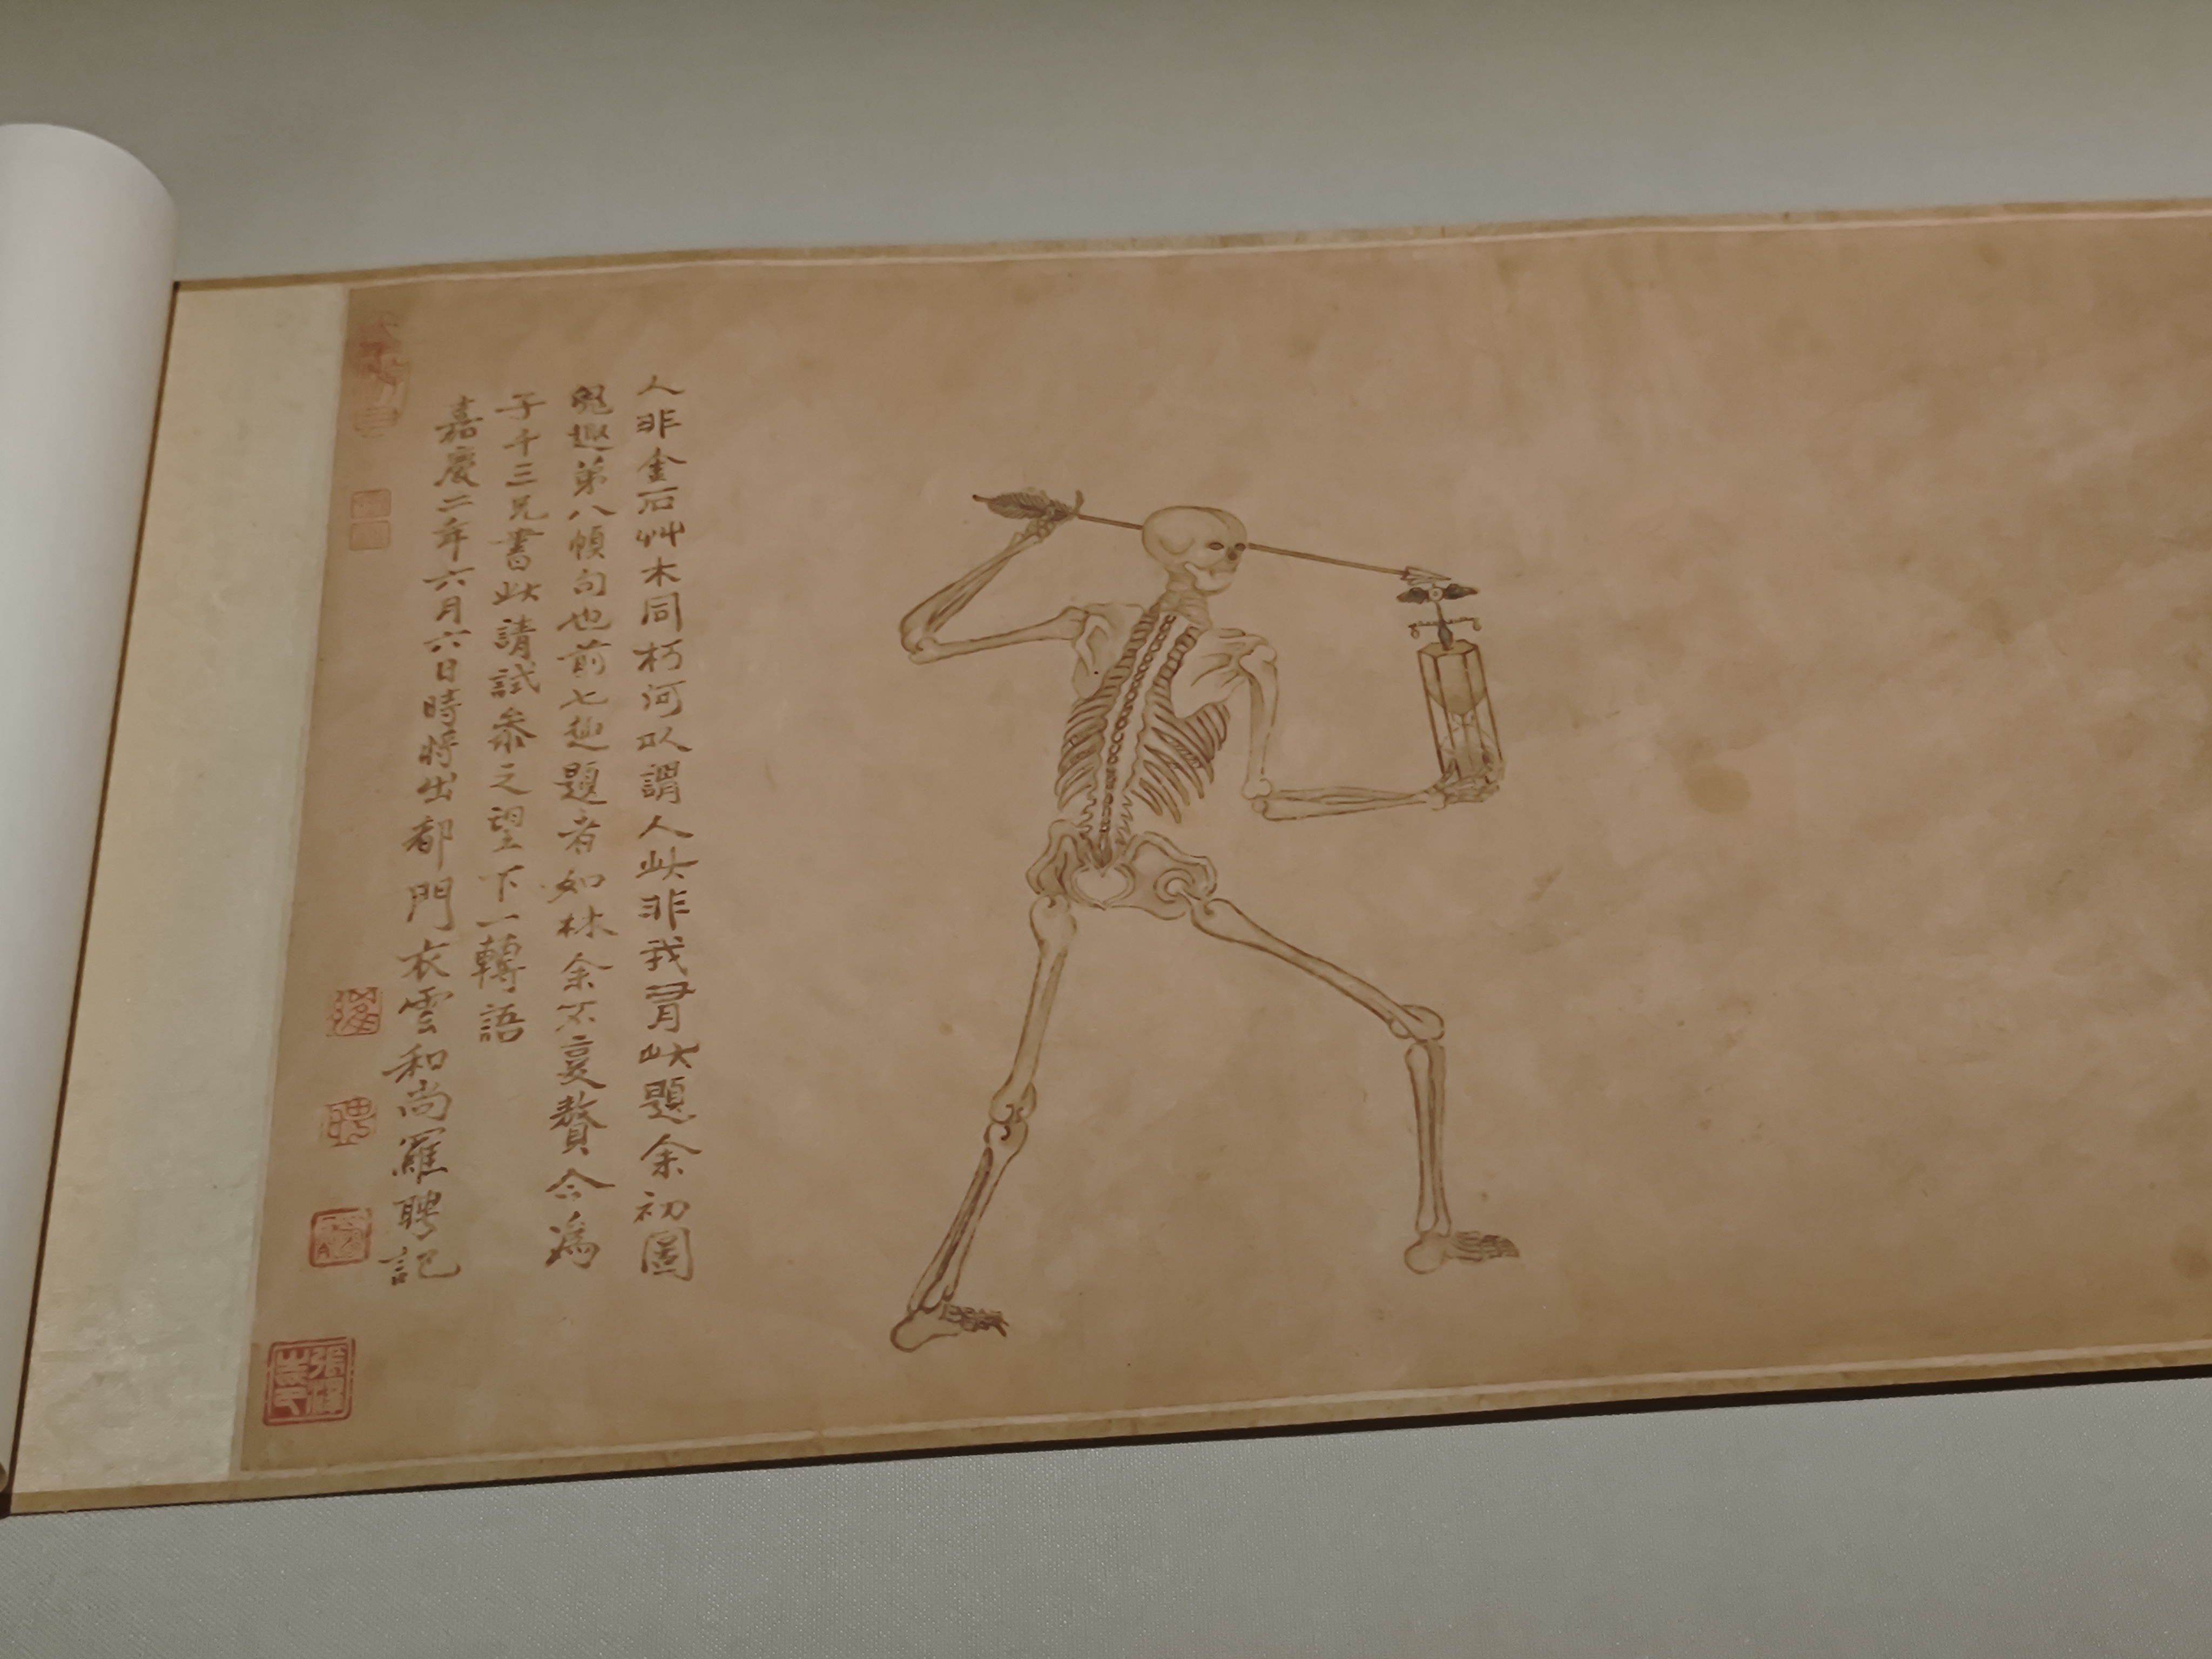 人非金石艸木同朽何以謂人此非我有此題余初圖
鬼趣第八幀句也前七趣題者如林余不哀贅今為
子千三兄書此請試叅之望下一轉語
嘉慶二年六月六日時將出都門衣雲和尚羅聘記
聘